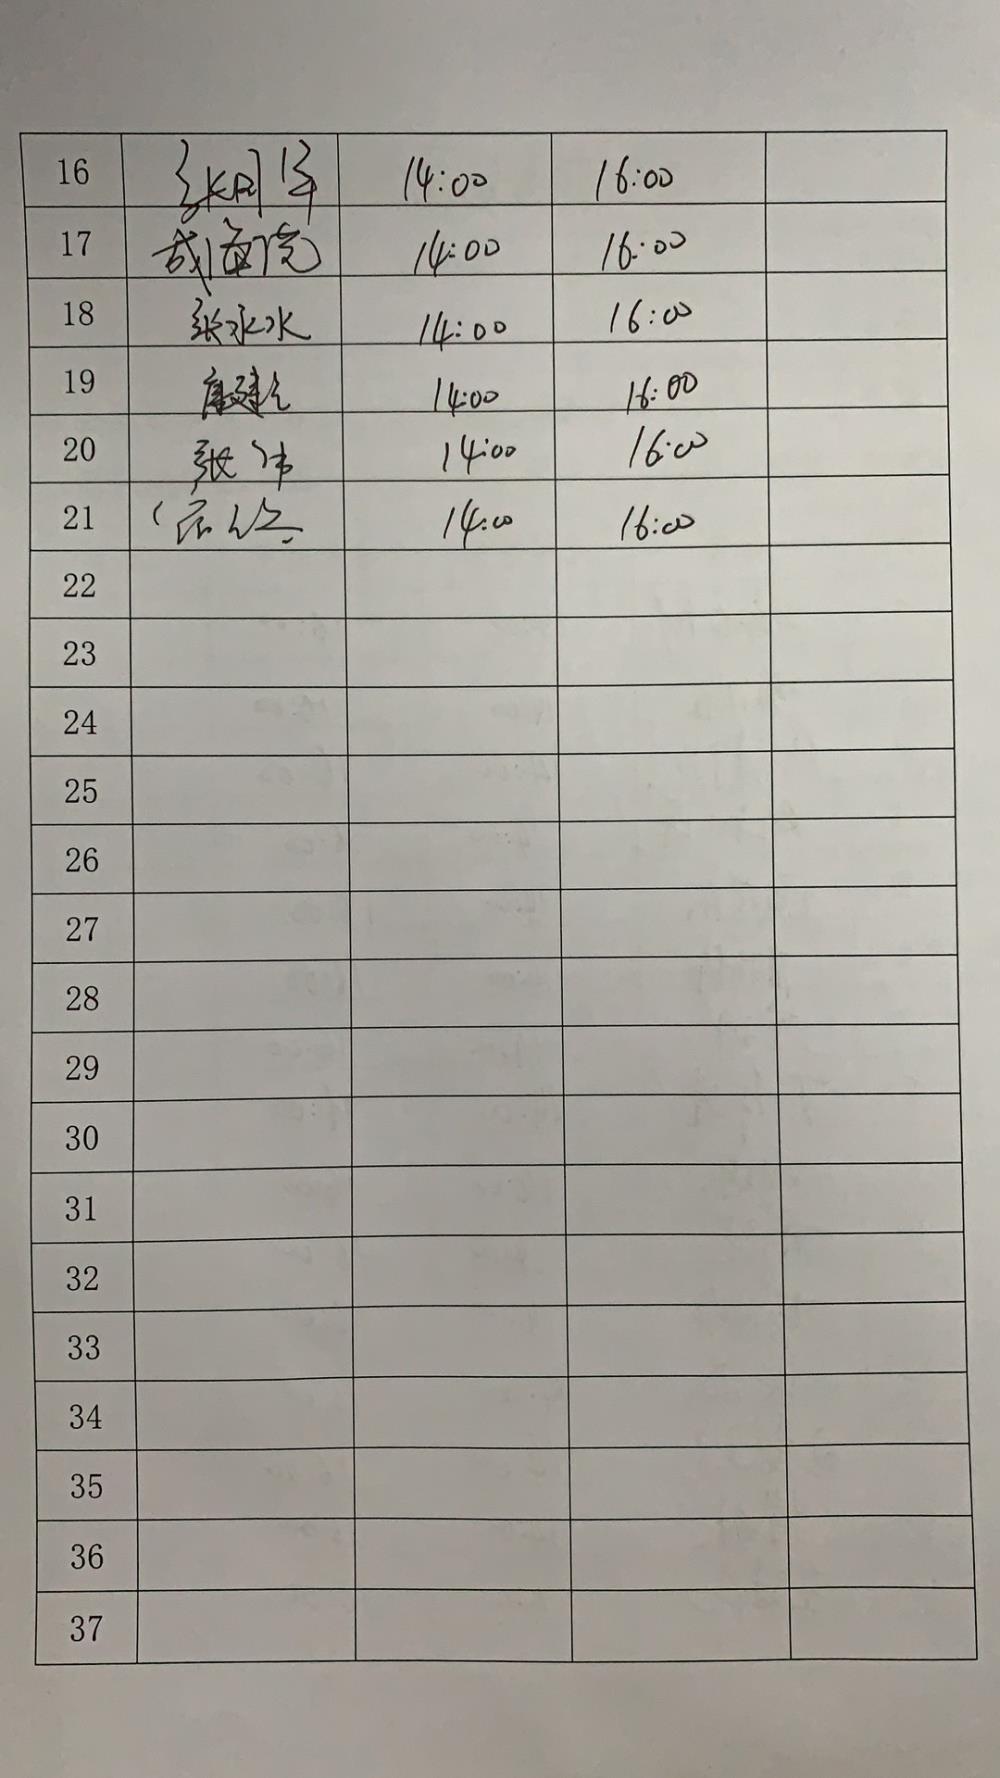 16 张 14:00 16:00
17 成海 14:00 16:00
18 张永水 14:00 16:00
19 14:00 16:00
20 张伟 14:00 16:00
21 14:00 16:00
22
23
24
25
26
27
28
29
30
31
32
33
34
35
36
37